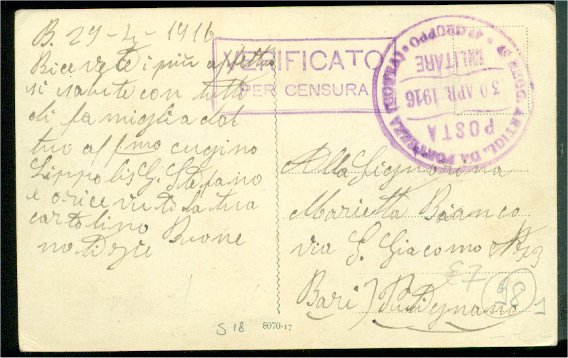 B. 29-4-1916
Ricevete i più affettuo
si saluti con tutti
di famiglia dal
tuo aff.mo cugino
Lippolis G. Stefano
e o ricevuto la tua
cartolina Buone
notizie
VERIFICATO
PER CENSURA
POSTA
MILITARE
30 APR. 1916
4° GRUPPO
ARTIGL. DA FORTEZZA
Alla Signorina
Marietta Bianco
via S. Giacomo N. 3
Bari) Putignano
£7
98
1
S 18
8070-17